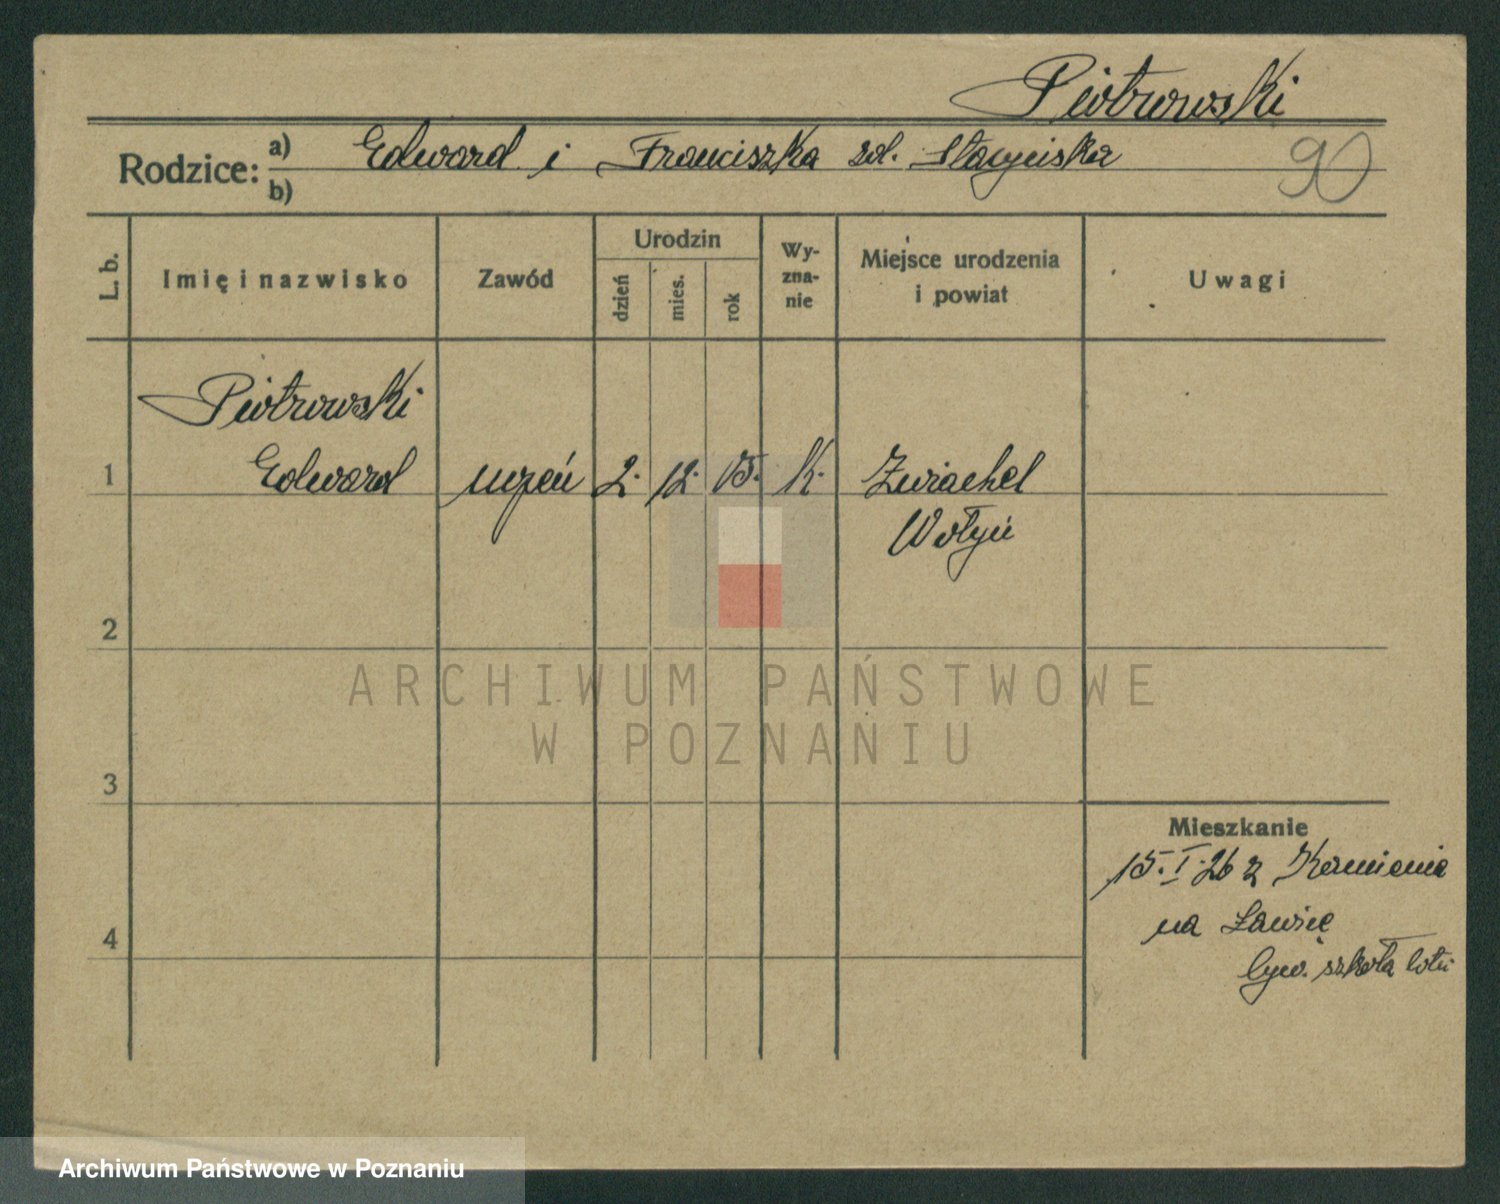 Piotrowski
Rodzice: a) Edward i Franciszka zd.
b)
90
L. b. Imię i nazwisko Zawód Urodzin dzień mies. rok Wyznanie Miejsce urodzenia i powiat Uwagi
Piotrowski
1 Edward uczeń 2. 12. 05. K. Zwiachel
Wołyń
2
ARCHIWUM PAŃSTWOWE
W POZNANIU
3
Mieszkanie
15. I. 26 z Kamienia
na Ławicę
4
cyw. szkoła lotn
Archiwum Państwowe w Poznaniu